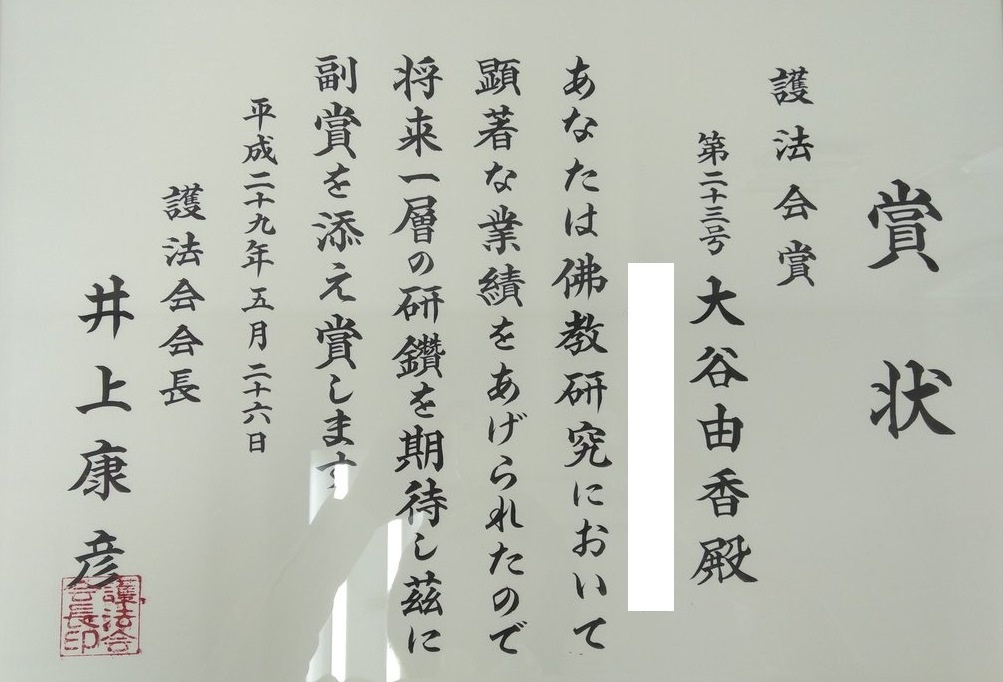 賞状
護法会賞
第二十三号 大谷由香殿
あなたは佛教研究において
顕著な業績をあげられたので
将来一層の研鑽を期待し茲に
副賞を添え賞します
平成二十九年五月二十六日
護法会会長
井上康彦
護法会
会長印